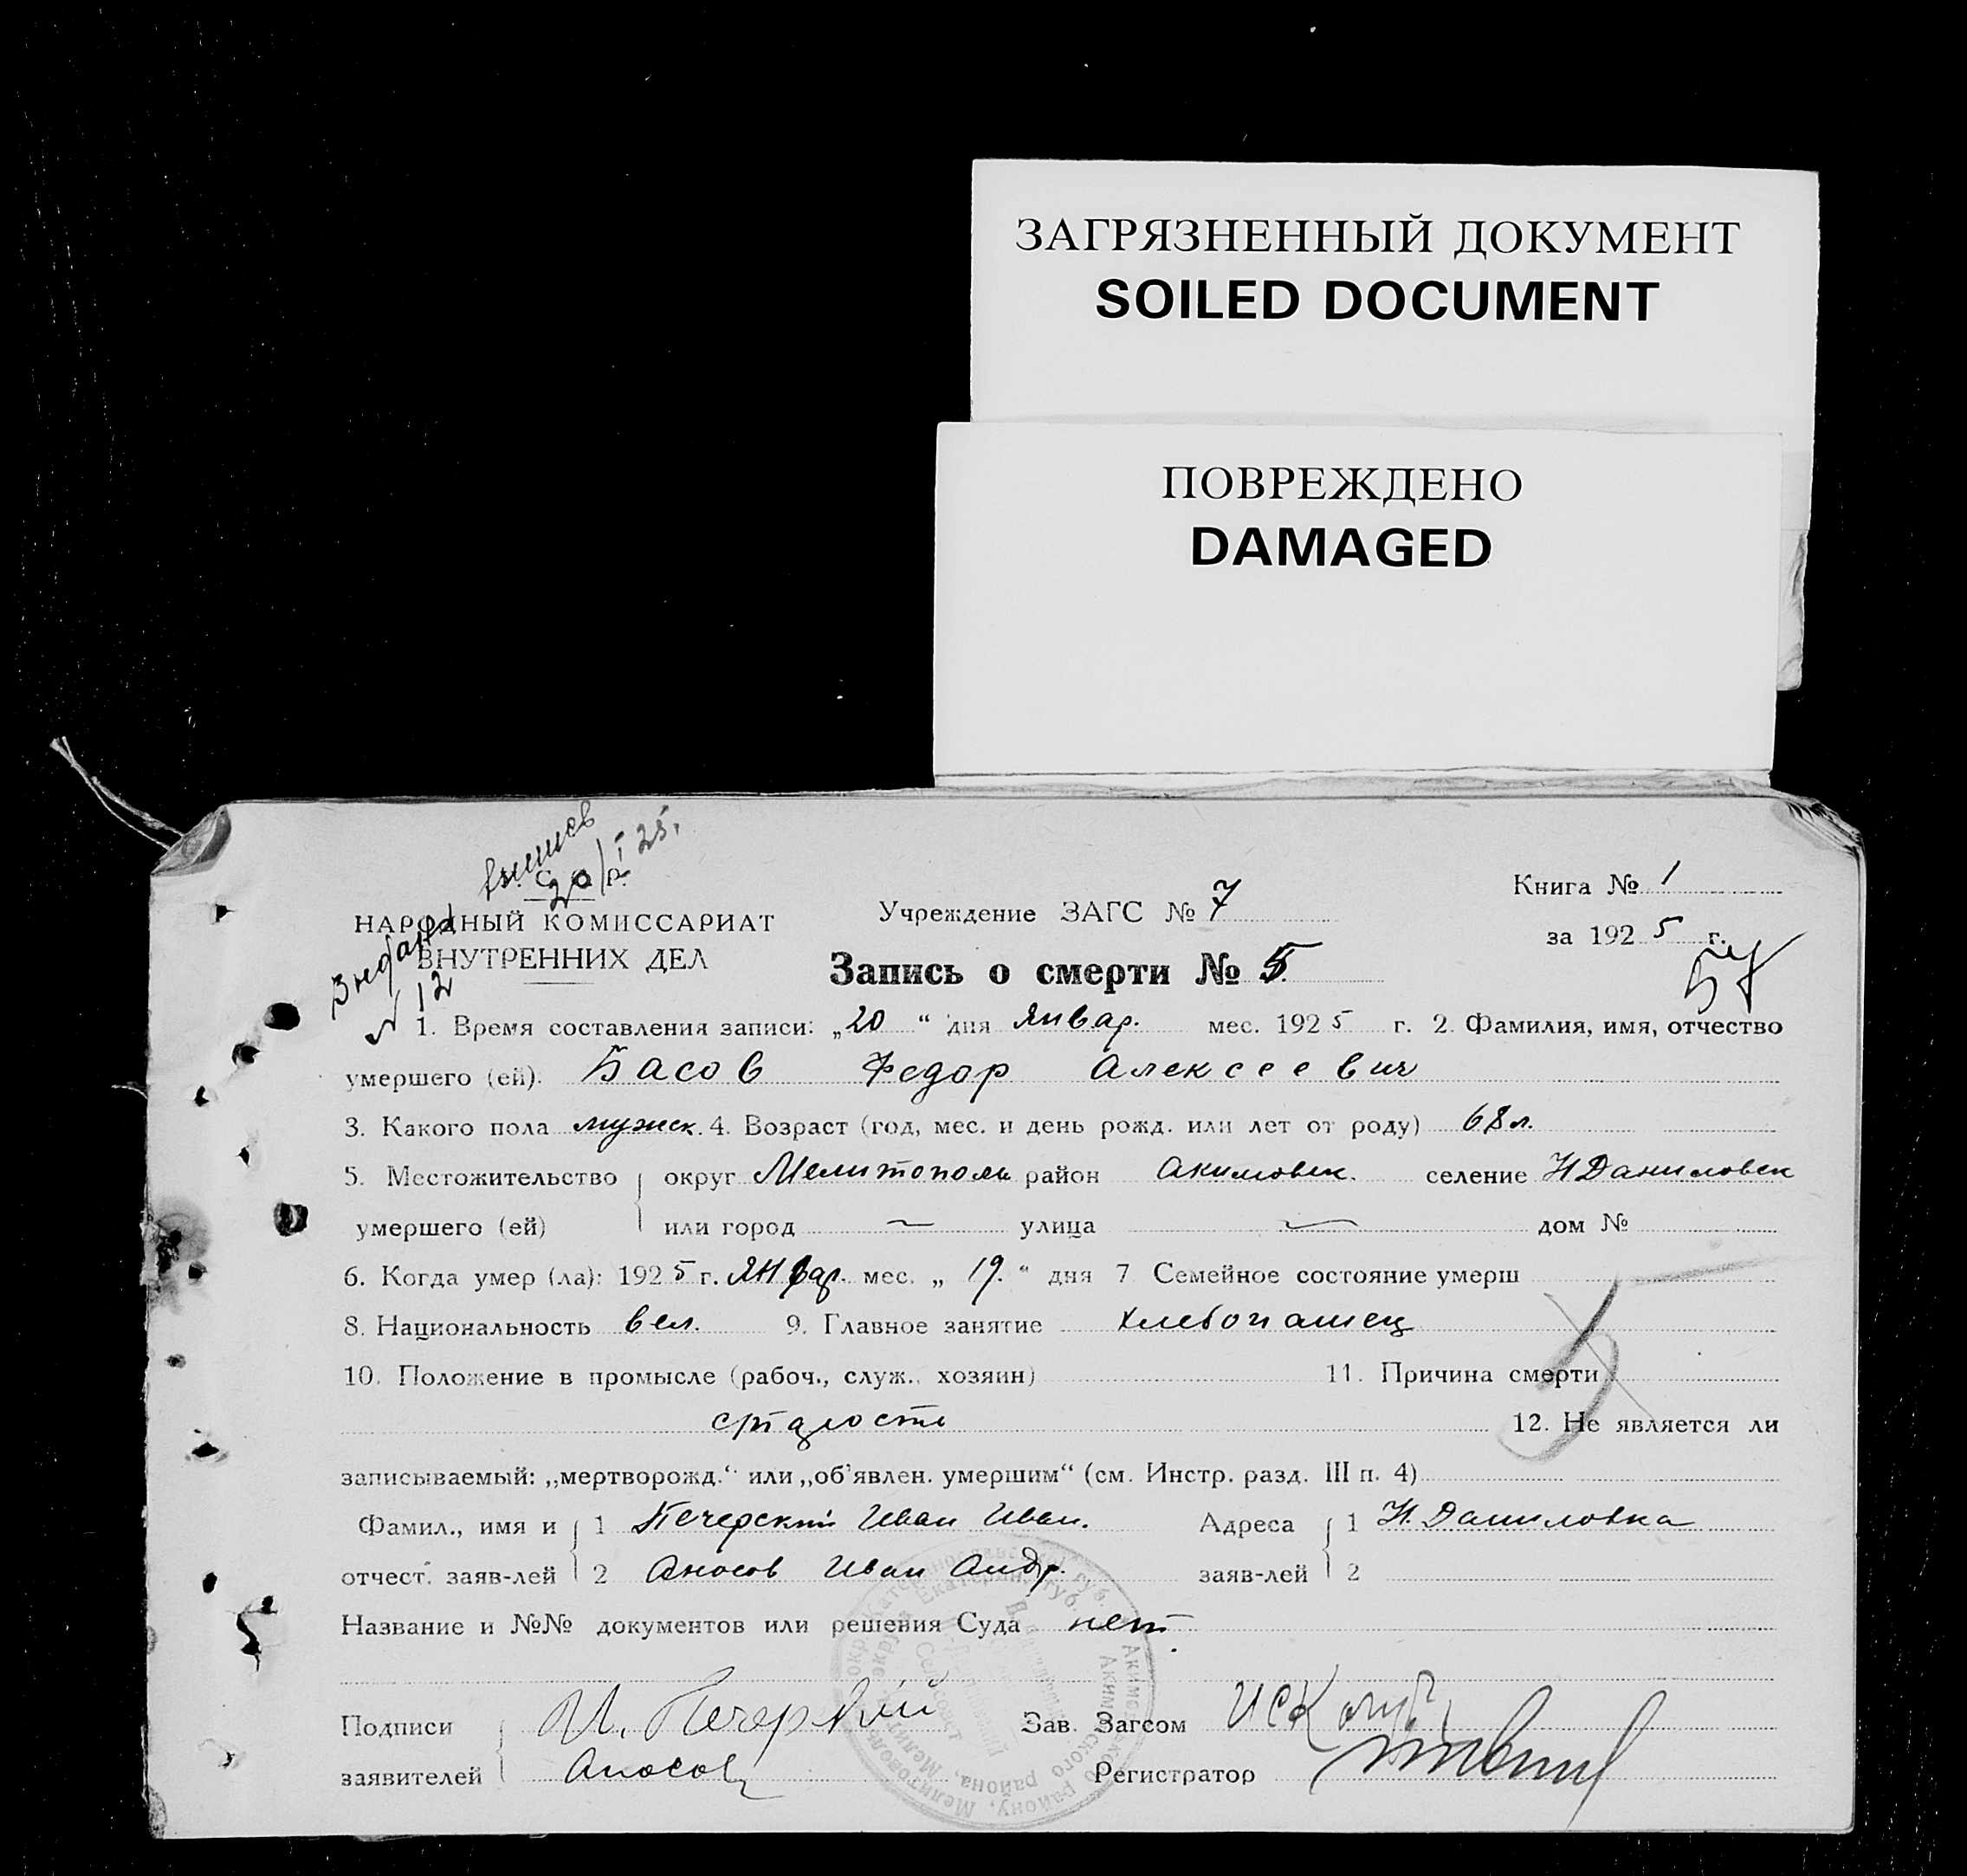 ЗАГРЯЗНЕННЫЙ ДОКУМЕНТ
SOILED DOCUMENT
ПОВРЕЖДЕНО
DAMAGED
20/I 25.
НАРОДНЫЙ КОМИССАРИАТ
ВНУТРЕННИХ ДЕЛ
12
Учреждение ЗАГС № 7
Книга № 1
за 1925 г.
Запись о смерти № 5
1. Время составления записи: „20“ дня Январ. мес. 1925 г. 2. Фамилия, имя, отчество
умершего (ей). Басов Федор Алексеевич
3. Какого пола мужск. 4. Возраст (год, мес. и день рожд. или лет от роду) 68 л.
5. Местожительство округ Мелитополь район Акимовск. селение Н Даниловск
умершего (ей) или город — улица — дом №
6. Когда умер (ла): 1925 г. Январ. мес. „19.“ дня 7 Семейное состояние умерш
8. Национальность вел. 9. Главное занятие хлебопашец
10. Положение в промысле (рабоч., служ., хозяин) 11. Причина смерти
старость 12. Не является ли
записываемый: „мертворожд.“ или „об'явлен. умершим“ (см. Инстр. разд. III п. 4)
Фамил., имя и 1 Печерский Иван Иван. Адреса 1 Н. Даниловка
отчест. заяв-лей 2 Аносов Иван Андр. заяв-лей 2
Название и №№ документов или решения Суда нет.
Подписи И. Печерский Зав. Загсом
заявителей Аносов Регистратор